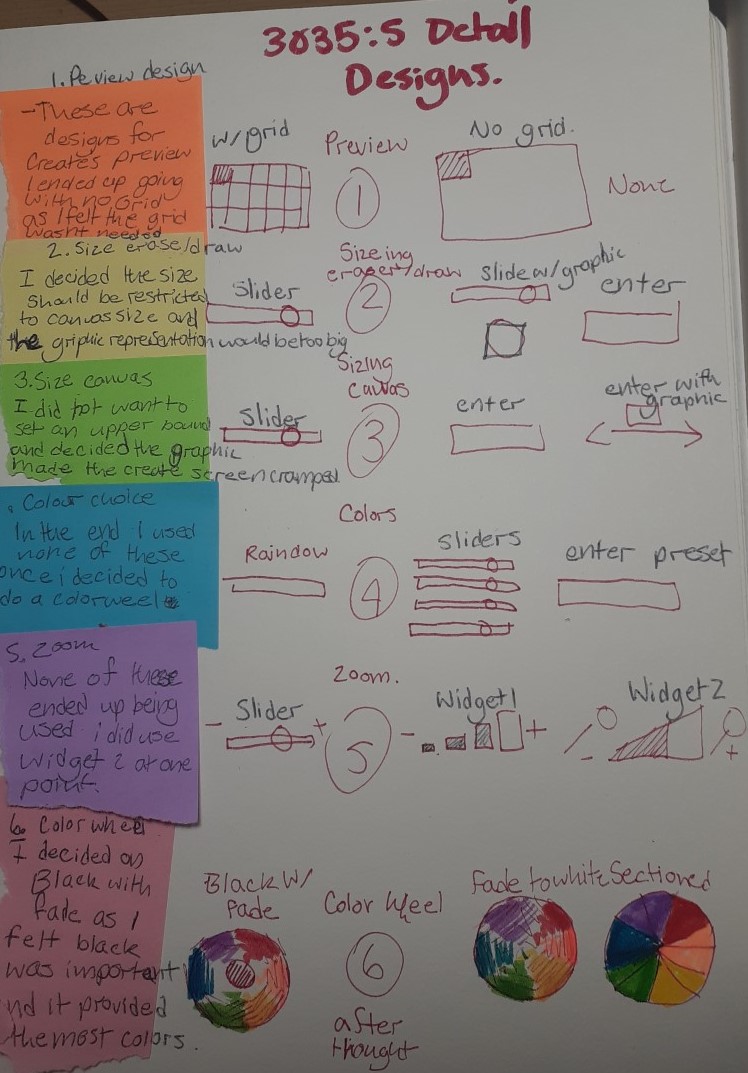 3035:5 Detail
Designs.
1. Peview design
- These are
designs for
Creates preview
I ended up going
with no Grid
as I felt the grid
wasnt needed
w/grid
Preview
1
No grid.
None
2. Size erase/draw
I decided the size
should be restricted
to canvas size and
the griphic representation would be too big
Slider
Sizeing
eraser/draw
2
slide w/graphic
enter
3. Size canvas
I did not want to
set an upper bound
and decided the graphic
made the create screen cramped
Slider
Sizing
Canvas
3
enter
enter with
graphic
. Colour choice
In the end I used
none of these
once i decided to
do a colorweel
Raindow
Colors
4
sliders
enter preset
5. Zoom
None of these
ended up being
used i did use
widget 2 at one
point.
- Slider +
Zoom.
5
- Widget 1 +
Widget 2
- +
6. Color wheel
I decided on
Black with
fade as I
felt black
was important
nd it provided
the most colors.
Black w/
fade
Color Wheel
6
after
thought
Fade to white
Sectioned